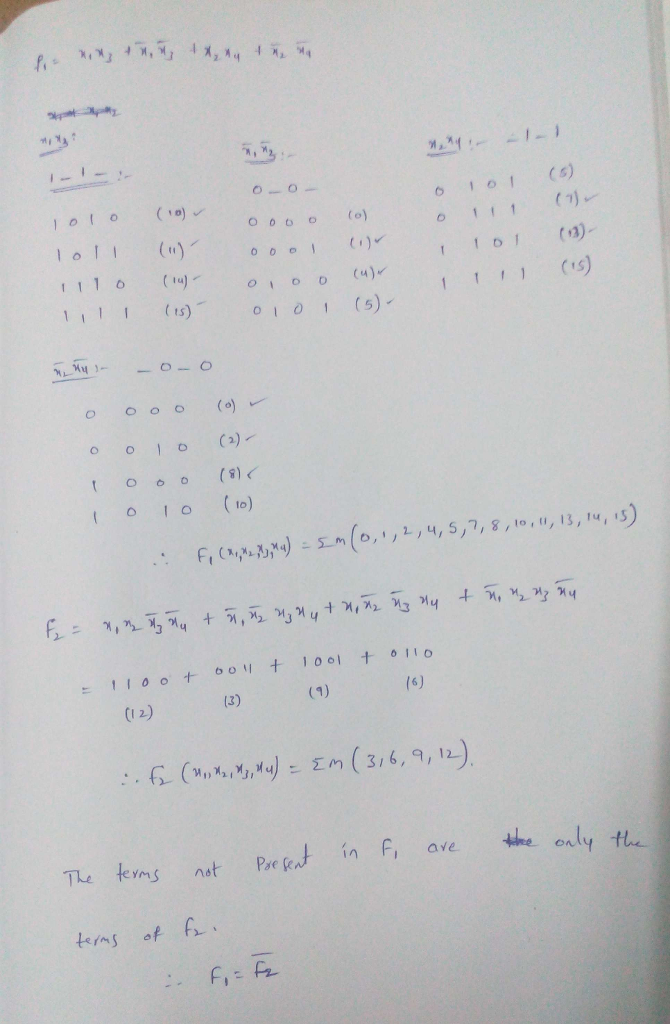 f₁ = x₁x₃ + x̄₁x̄₃ + x₂x₄ + x̄₂x̄₄
x₁x₃:
1 – 1 – :-
1 0 1 0 (10) ✓
1 0 1 1 (11) ✓
1 1 1 0 (14) ✓
1 1 1 1 (15) ✓
x̄₁x̄₃ :-
0 – 0 –
0 0 0 0 (0)
0 0 0 1 (1) ✓
0 1 0 0 (4) ✓
0 1 0 1 (5) ✓
x₂x₄ :- – 1 – 1
0 1 0 1 (5)
0 1 1 1 (7) ✓
1 1 0 1 (13) ✓
1 1 1 1 (15)
x̄₂x̄₄ :- – 0 – 0
0 0 0 0 (0) ✓
0 0 1 0 (2) ✓
1 0 0 0 (8) ✓
1 0 1 0 (10)
∴ F₁(x₁,x₂,x₃,x₄) = Σm(0,1,2,4,5,7,8,10,11,13,14,15)
f₂ = x₁x₂x̄₃x̄₄ + x̄₁x̄₂x₃x₄ + x₁x̄₂x̄₃x₄ + x̄₁x₂x₃x̄₄
= 1100 + 0011 + 1001 + 0110
(12) (3) (9) (6)
∴ f₂ (x₁,x₂,x₃,x₄) = Σm (3,6,9,12).
The terms not Present in F₁ are only the
terms of f₂.
∴ F₁ = F̄₂